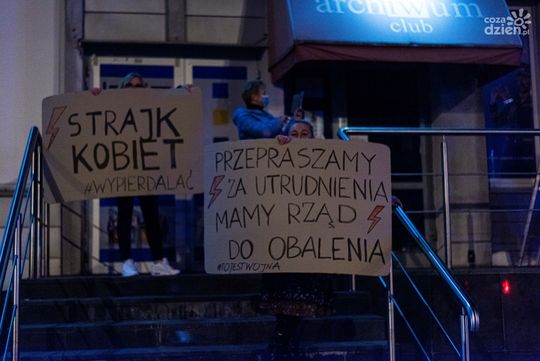 archiwum
club
cozadzień.pl
STRAJK
KOBIET
#WYPIERDALAĆ
PRZEPRASZAMY
ZA UTRUDNIENIA
MAMY RZĄD
DO OBALENIA
#TOJESTWOJNA